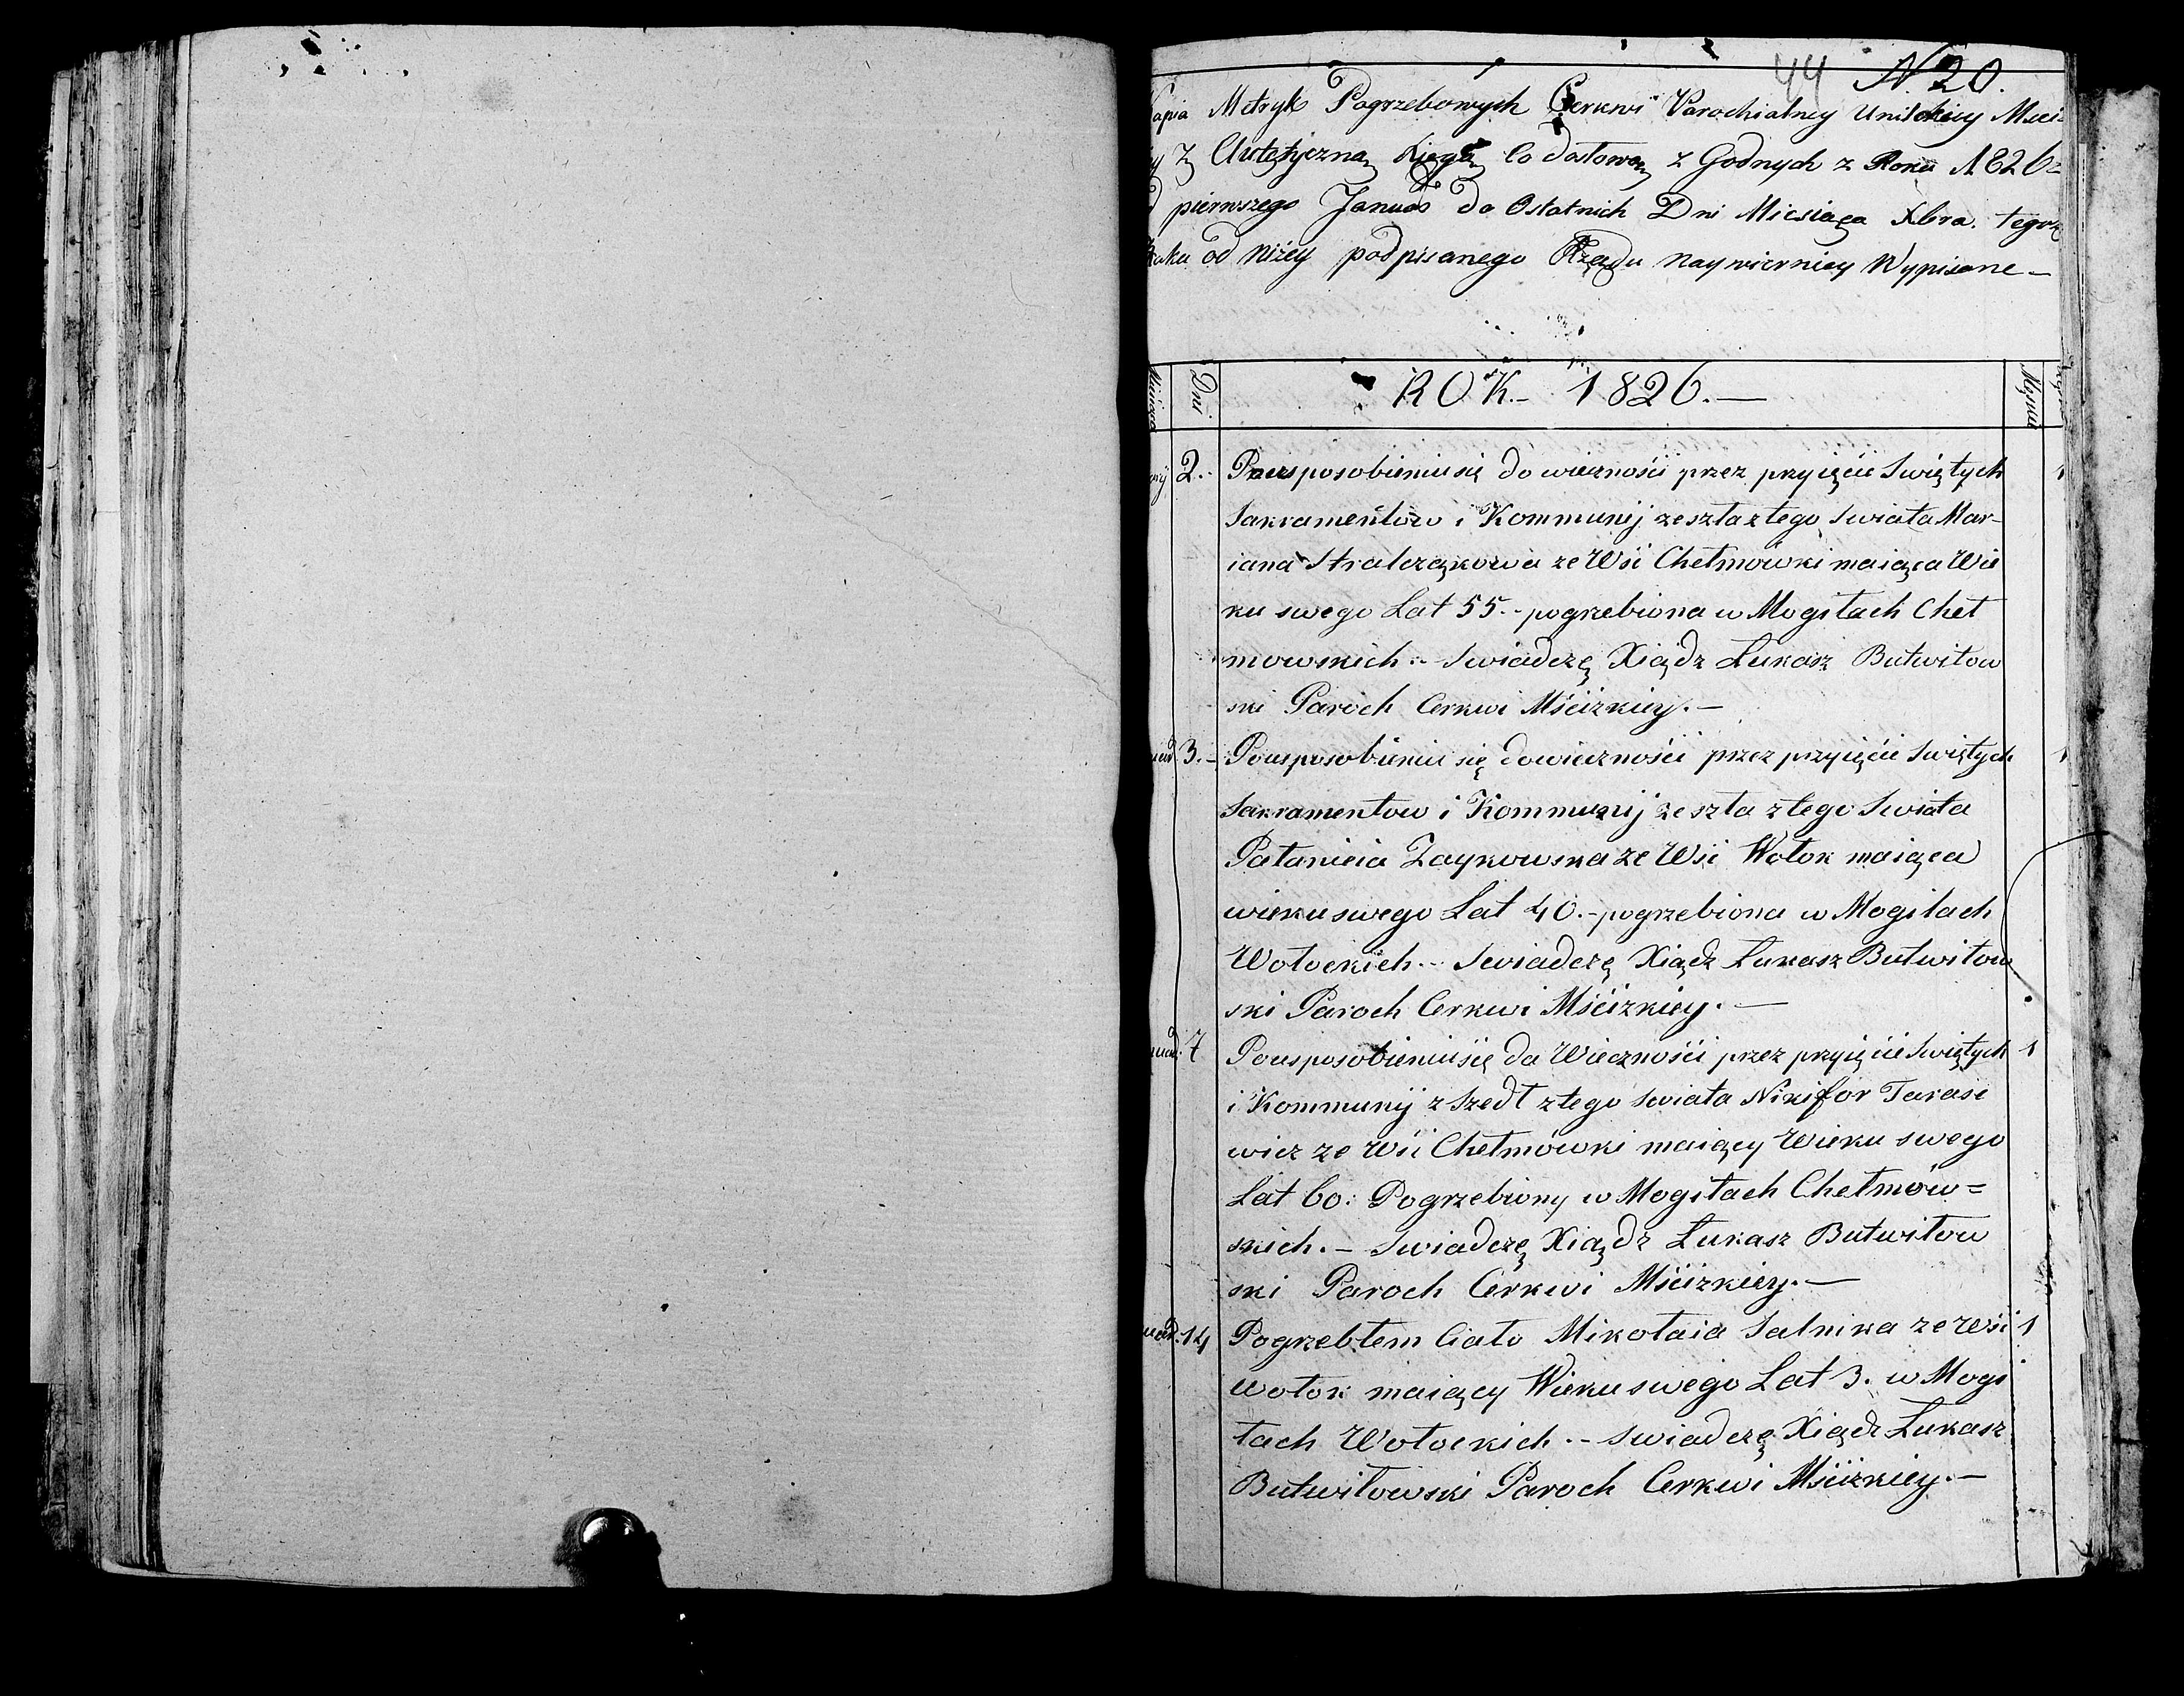 44 N. 20.
Kopia Metryk Pogrzebowych Cerkwi Parochialney Unitskiey Msci-
y Z Autętyczną Xięgą Co dosłowa z Godnych z Roku 1826=
pierwszego Januar do Ostatnich Dni Miesiąca Xbra. tegoż
Roku od niżey podpisanego Rządu naywierniey Wypisane —
Miesiąca Dni ROK.- 1826.— Męzni
2.- Pousposobieniusię do wiecznośći przez przyięcie Swiętych 1
Sakramentow i Kommunij zeszła ztego Swiata Mar-
iana Stralcząkowa ze Wsi Chełmówki maiąca Wie
ku swego Lat 55.- pogrzebiona w Mogiłach Cheł
mowskich.- Swiadczę Xiądz Łukasz Butwiłow
ski Paroch Cerkwi Mśćizkiey.—
3.- Pousposobieniu się dowiecznośći przez przyięcie Swiętych 1
Sakramentow i Kommunij zeszła ztego Swiata
Pałanieia Zaykowska ze Wsi Wołok maiąca
wieku swego Lat 40.- pogrzebiona w Mogiłach
Wołockich.- Swiadczę Xiądz Łukasz Butwiłow
ski Paroch Cerkwi Mśćizkiey.—
7 Pousposobieniusię do Wiecznośći przez przyięcie Swiętych 1
i Kommunij zszedł ztego swiata Nikifor Tarasie
wicz ze Wsi Chełmówki maiący Wieku swego
Lat 60: Pogrzebiony w Mogiłach Chełmow=
skich.- Swiadczę Xiądz Łukasz Butwiłow
ski Paroch Cerkwi Mśćizkiey.—
14 Pogrzebłem Ciało Mikołaia Salnika ze Wsi 1
Wołok maiący Wieku swego Lat 3. w Mogi
łach Wołockich.- Swiadczę Xiądz Łukasz
Butwiłowski Paroch Cerkwi Mśćizkiey.—